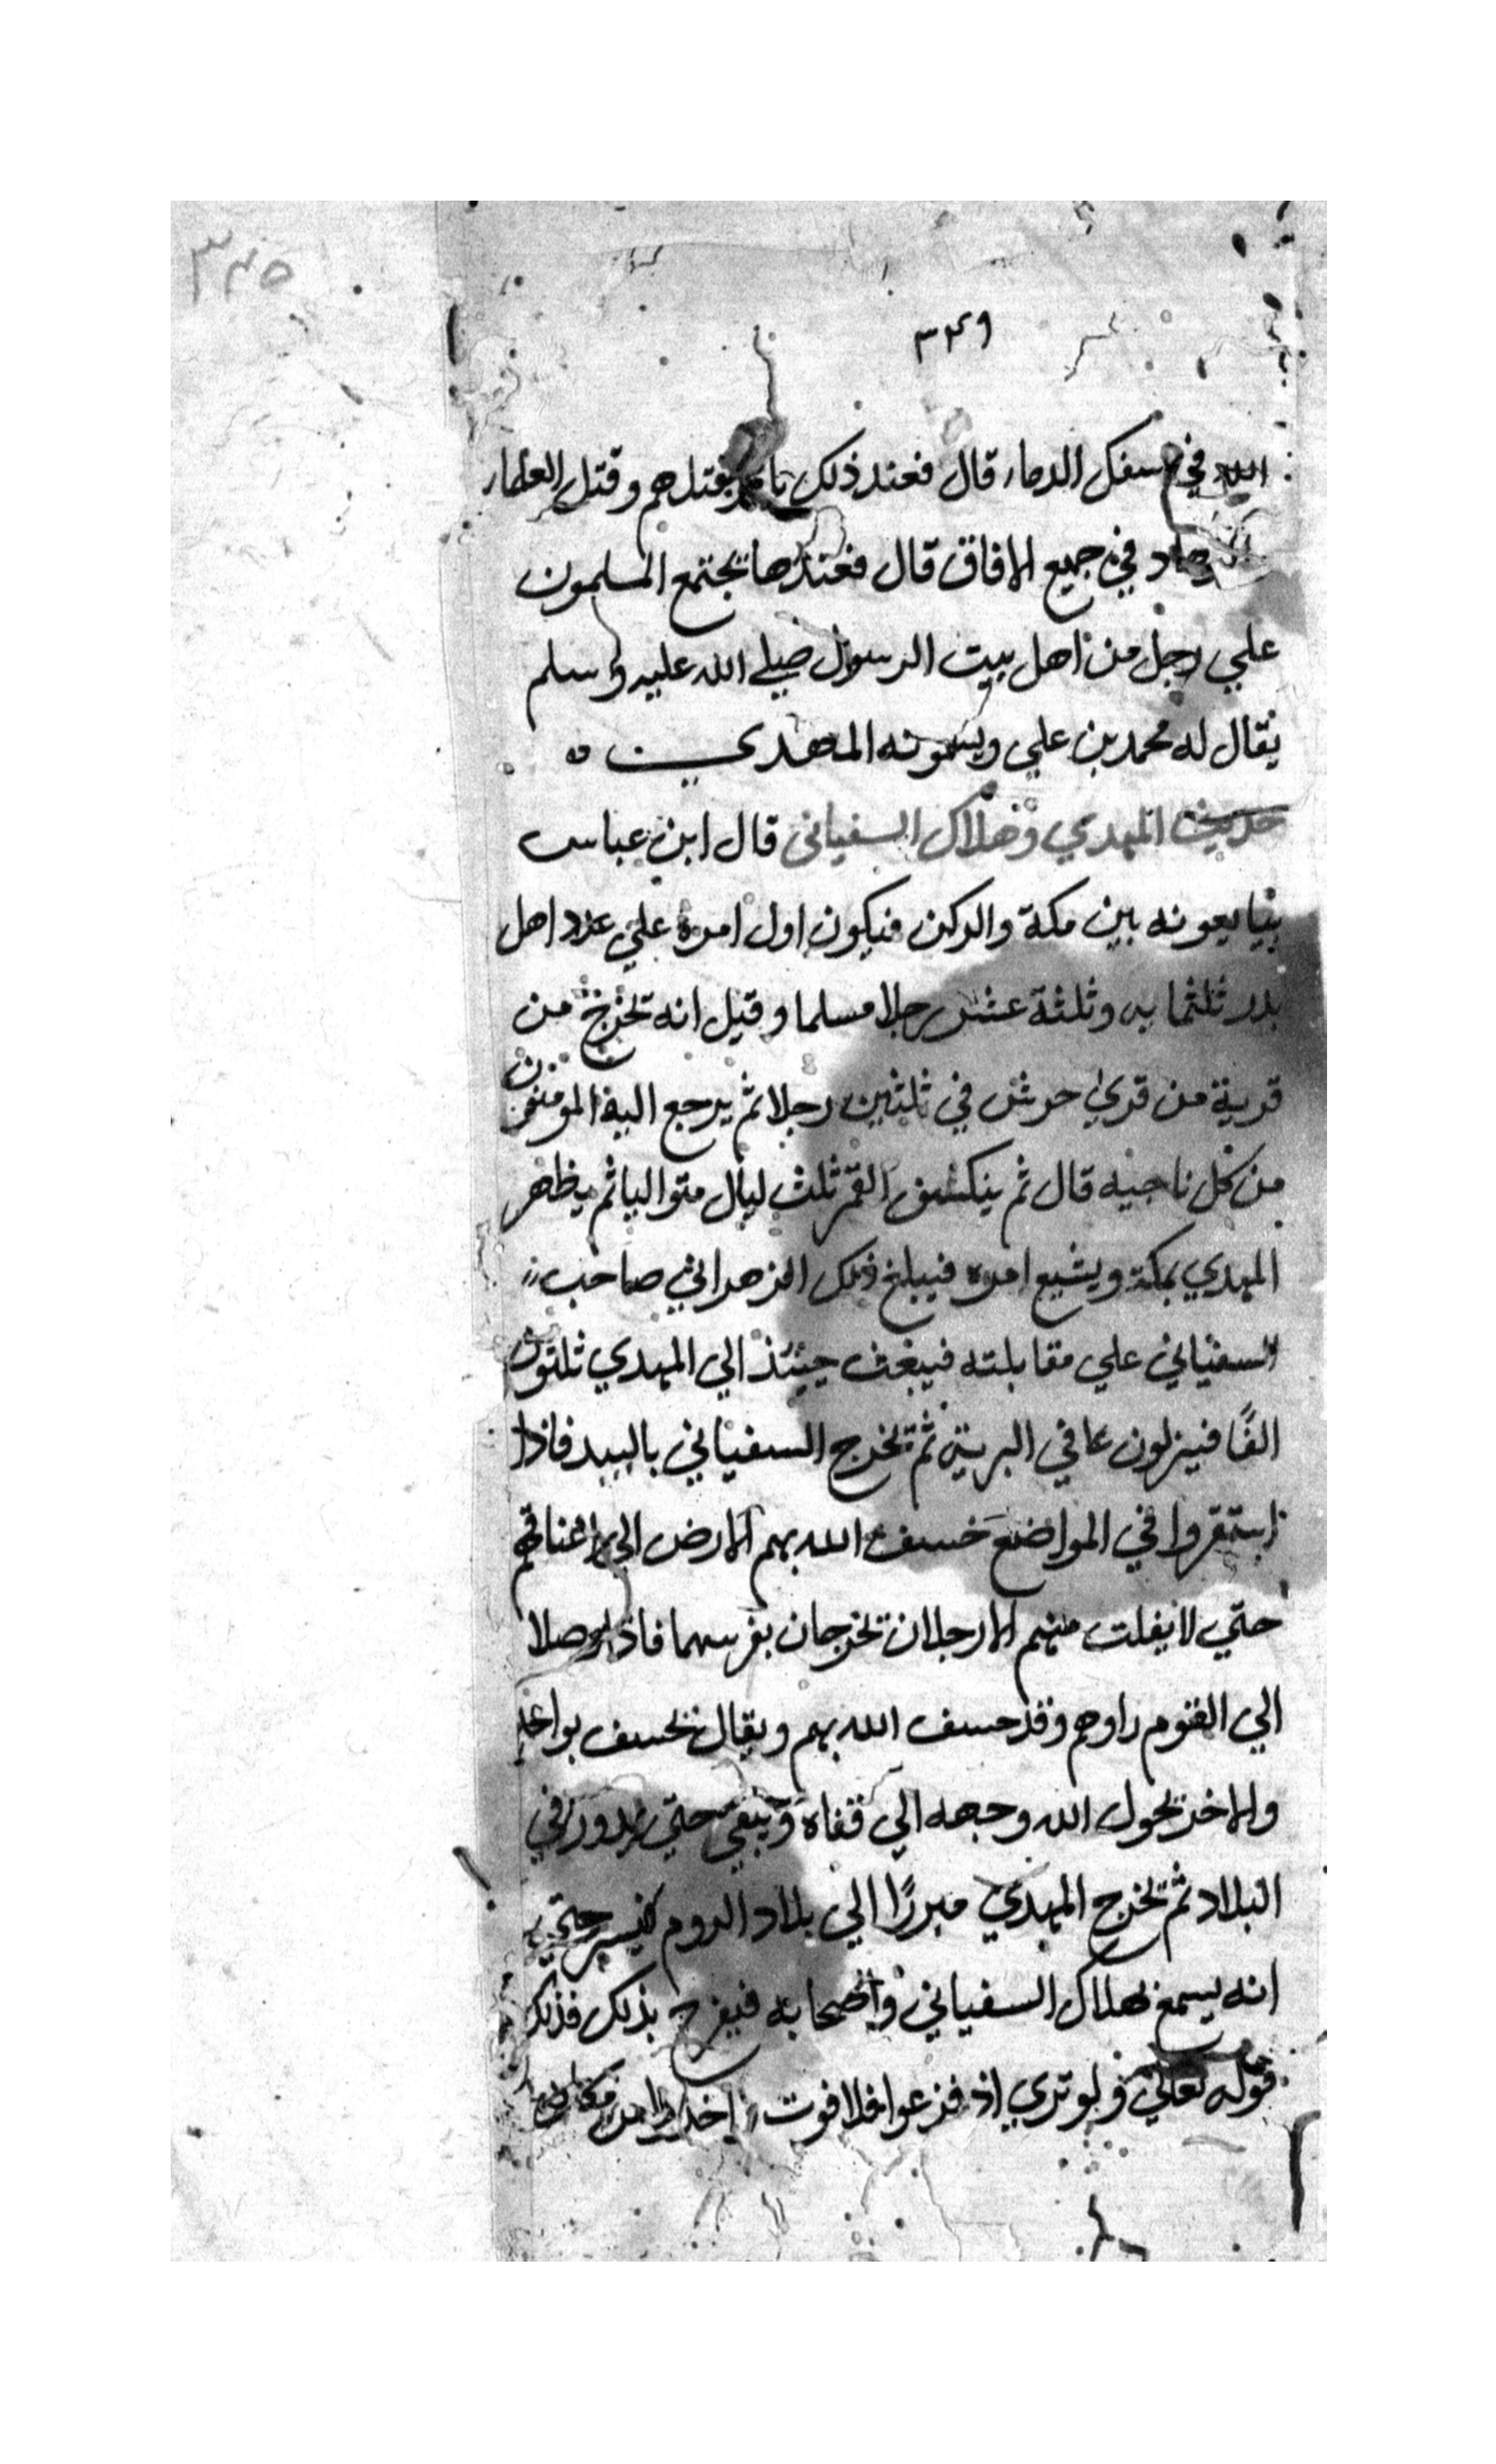 ٣٤٥
٣٤٩
الله في سفك الدماء قال فعند ذلك يامر بقتلهم وقتل العلماء
في جميع الافاق قال فعندها يجتمع المسلمون
علي رجل من اهل بيت الرسول صلي الله عليه وسلم
يقال له محمد بن علي ويسمونه المهدي
حديث المهدي وهلاك السفياني قال ابن عباس
يبايعونه بين مكة والركن فيكون اول امره علي عدد اهل
بدر ثلثمايه وثلثة عشر رجلا مسلما وقيل انه تخرج من
قرية من قري حرش في ثلثين رجلا ثم يرجع اليه المومنون
من كل ناحيه قال ثم ينكسف القمر ثلث ليال متواليا ثم يظهر
المهدي بمكة ويشيع امره فيبلغ ذلك الزهراني صاحب
السفياني علي مقابلته فيبعث حينئذ الي المهدي ثلثون
الفًا فينزلون عا في البرية ثم يخرج السفياني بالبيد فاذا
استقروا في المواضع خسف الله بهم الارض الي اعناقهم
حتي لا يفلت منهم الا رجلان تخرجان بفرسهما فاذا وصلا
الي القوم راوهم وقد خسف الله بهم ويقال يخسف بواحد
والاخر يحول الله وجهه الي قفاه ويبقي حتي يدور في
البلاد ثم تخرج المهدي مبررًا الي بلاد الروم فيسير حتي
انه يسمع بهلاك السفياني واصحابه فيفرح بذلك فذلك
قوله تعالي ولو تري اذ فزعوا فلا فوت واخذوا من مكان